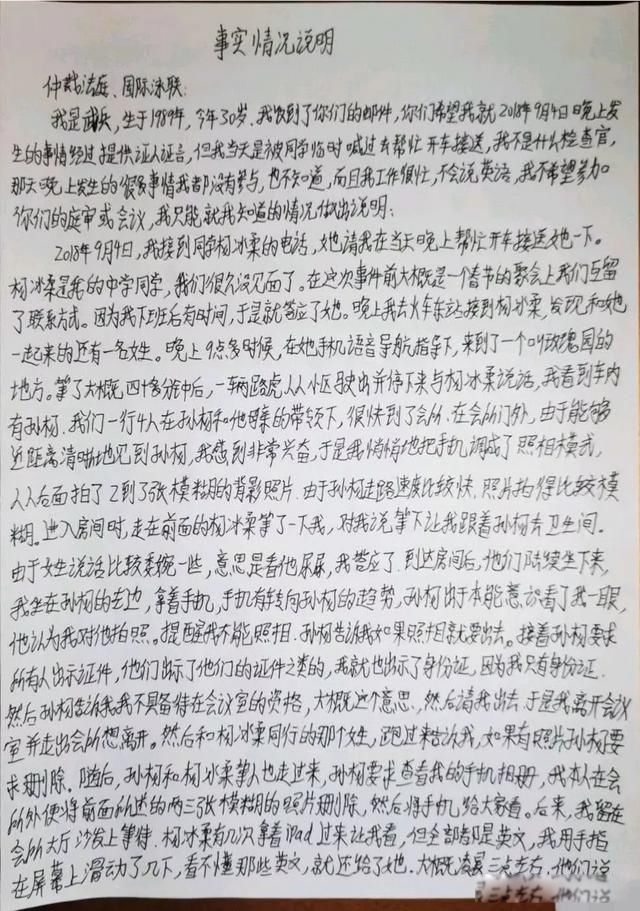 事实情况说明
仲裁法庭、国际泳联:
我是武兵,生于1989年,今年30岁.我收到了你们的邮件,你们希望我就2018年9月4日晚上发
生的事情经过提供证人证言,但我当天是被同学临时喊过去帮忙开车接送,我不是什么检查官,
那天晚上发生的很多事情我都没有参与,也不知道,而且我工作很忙,不会说英语,我不希望参加
你们的庭审或会议,我只能就我知道的情况做出说明:
2018年9月4日,我接到同学杨冰柔的电话,她请我在当天晚上帮忙开车接送她一下。
杨冰柔是我的中学同学,我们很久没见面了。在这次事件前大概是一个春节的聚会上我们互留
了联系方式。因为我下班后有时间,于是就答应了她。晚上我去火车东站接到杨冰柔,发现和她
一起来的还有一名女性。晚上9点多时候,在她手机语音导航指导下,来到了一个叫玫瑰园的
地方。等了大概四十多分钟后,一辆路虎从小区驶出并停下来与杨冰柔说话,我看到车内
有孙杨.我们一行4人在孙杨和他母亲的带领下,很快到了会所.在会所门外,由于能够
近距离清晰地见到孙杨,我感到非常兴奋,于是我悄悄地把手机调成了照相模式,
从后面拍了2到了张模糊的背影照片.由于孙杨走路速度比较快.照片拍得比较模
糊.进入房间时,走在前面的杨冰柔等了一下我,对我说等下让我跟着孙杨去卫生间.
由于女生说话比较委婉一些,意思是看他尿尿,我答应了.到达房间后,他们陆续坐下来,
我坐在孙杨的左边,拿着手机,手机有转向孙杨的趋势,孙杨出于本能意识看了我一眼,
他认为我对他拍照。提醒我不能照相.孙杨告诉我如果照相就要出去。接着孙杨要求
所有人出示证件,他们出示了他们的证件之类的,我就也出示了身份证,因为我只有身份证.
然后孙杨告诉我我不具备待在会议室的资格,大概这个意思,然后请我出去.于是我离开会议
室并走出会所想离开。然后和杨冰柔同行的那个女生,跑过来告诉我,如果有照片孙杨要
求删除.随后,孙杨和杨冰柔等人也走过来,孙杨要求查看我的手机相册,我本人在会
所外便将前面所述的两三张模糊的照片删除,然后将手机给大家看。后来,我留在
会所大厅沙发上等待.杨冰柔有几次拿着ipad过来让我看,但全部都是英文,我用手指
在屏幕上滑动了几下,看不懂那些英文,就还给了她.大概凌晨三点左右.他们说
三点左右.他们说